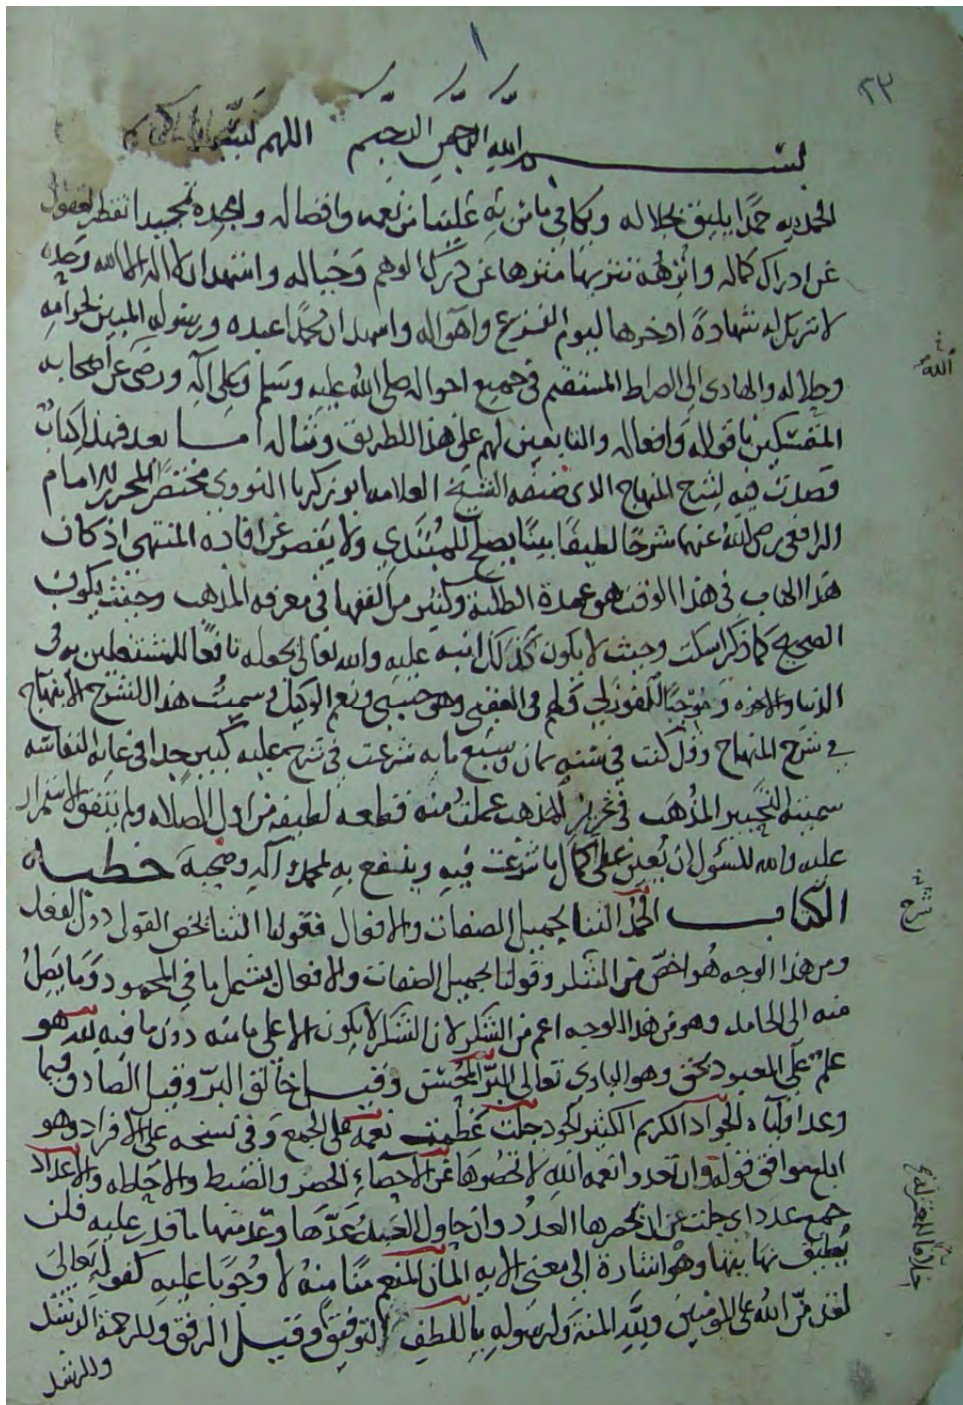 ١
٢٣
بسم الله الرحمن الرحيم اللهم
الحمد لله حمدا يليق بجلاله ويكافي ما من به علينا من نعمه وافضاله وامجده تمجيدا تقصر العقول
عن ادراك كماله وانزهه تنزيها منزها عن درك الوهم وخياله واشهد ان لا اله الا الله وحده
لا شريك له شهادة ادخرها ليوم الفزع واهواله واشهد ان محمدا عبده ورسوله المبين لحرامه
وحلاله والهادي الى الصراط المستقيم في جميع احواله صلى الله عليه وسلم وعلى آله ورضي عن اصحابه
الله
المتمسكين باقواله وافعاله والتابعين لهم على هذا الطريق ومثاله اما بعد فهذا كتاب
قصدت فيه لشرح المنهاج الذي صنفه الشيخ العلامه ابو زكريا النووي مختصر المحرر للامام
الرافعي رضي الله عنهما شرحا لطيفا بينا يصلح للمبتدي ولا يقصر عن افادة المنتهي اذ كان
هذا الكتاب في هذا الوقت هو عمدة الطلبة وكثير من الفقها في معرفه المذهب وحيث يكون
الصحيح كما ذكر اسكت وحيث لا يكون كذلك انبه عليه والله تعالى يجعله نافعا للمشتغلين به في
الدنيا والاخره وموجبا للفوز لي ولهم في العقبى وهو حسبي ونعم الوكيل وسميت هذا الشرح الابتهاج
في شرح المنهاج وقد كنت في سنه ثمان وسبع مايه شرعت في شرح عليه كبير جدا في غايه النفاسه
سميته التحبير المذهب في تحرير المذهب عملت منه قطعه لطيفه من اول الصلاه ولم يتفق الاستمرار
عليه والله المسئول ان يعين على اكمال ما شرعت فيه وينفع به بمحمد وآله وصحبه خطبه
الكتاب الحمد الثنا بجميل الصفات والافعال فقولنا الثنا يخص القول دون الفعل
شرح
ومن هذا الوجه هو اخص من الشكر وقولنا بجميل الصفات والافعال يشمل ما في المحمود وما يصل
منه الى الحامد وهو من هذا الوجه اعم من الشكر لان الشكر لا يكون الا على ما منه دون ما فيه لله هو
علم على المعبود بحق وهو الباري تعالى البر المحسن وقيل خالق البر وقيل الصادق فيما
وعد اولياه الجواد الكريم الكثير الجود جلت عظمت نعمه على الجمع وفي نسخه على الافراد وهو
ابلغ موافق قوله وان تعدوا نعمه الله لا تحصوها عن الاحصاء الحصر والضبط والاحاطه والاعداد
جمع عدد اي جلت عن ان يحصرها العدد وان حاول العبد عدها وعد منها ما قدر عليه فلن
يطيق نهايتها وهو اشارة الى معنى الايه المان المنعم منا منه لا وجوبا عليه كقوله تعالى
خلافا للمعتزله
لقد من الله على المومنين ولله المنة ولرسوله باللطف التوفيق وقيل الرفق والرحمة